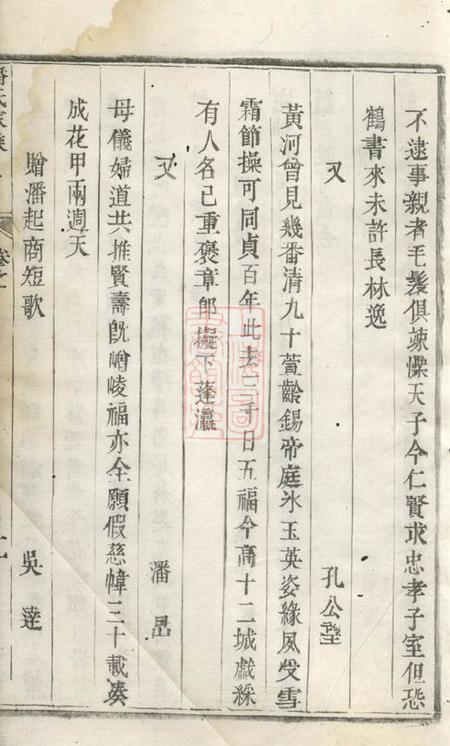 不逮事親者毛髮俱竦慄天子今仁賢求忠孝子室但恐
鶴書來未許長林逸
又 孔公
黃河曾見幾番清九十萱齡錫帝庭氷玉英姿緣夙受雪
霜節操可同貞百年此去三千日五福今高十二城戲綵
有人名已重褒章郎擬下蓬瀛
又 潘昂
母儀婦道共推賢壽旣嶒崚福亦全願假慈幃三十載湊
成花甲兩週天
贈潘起商短歌
吳達